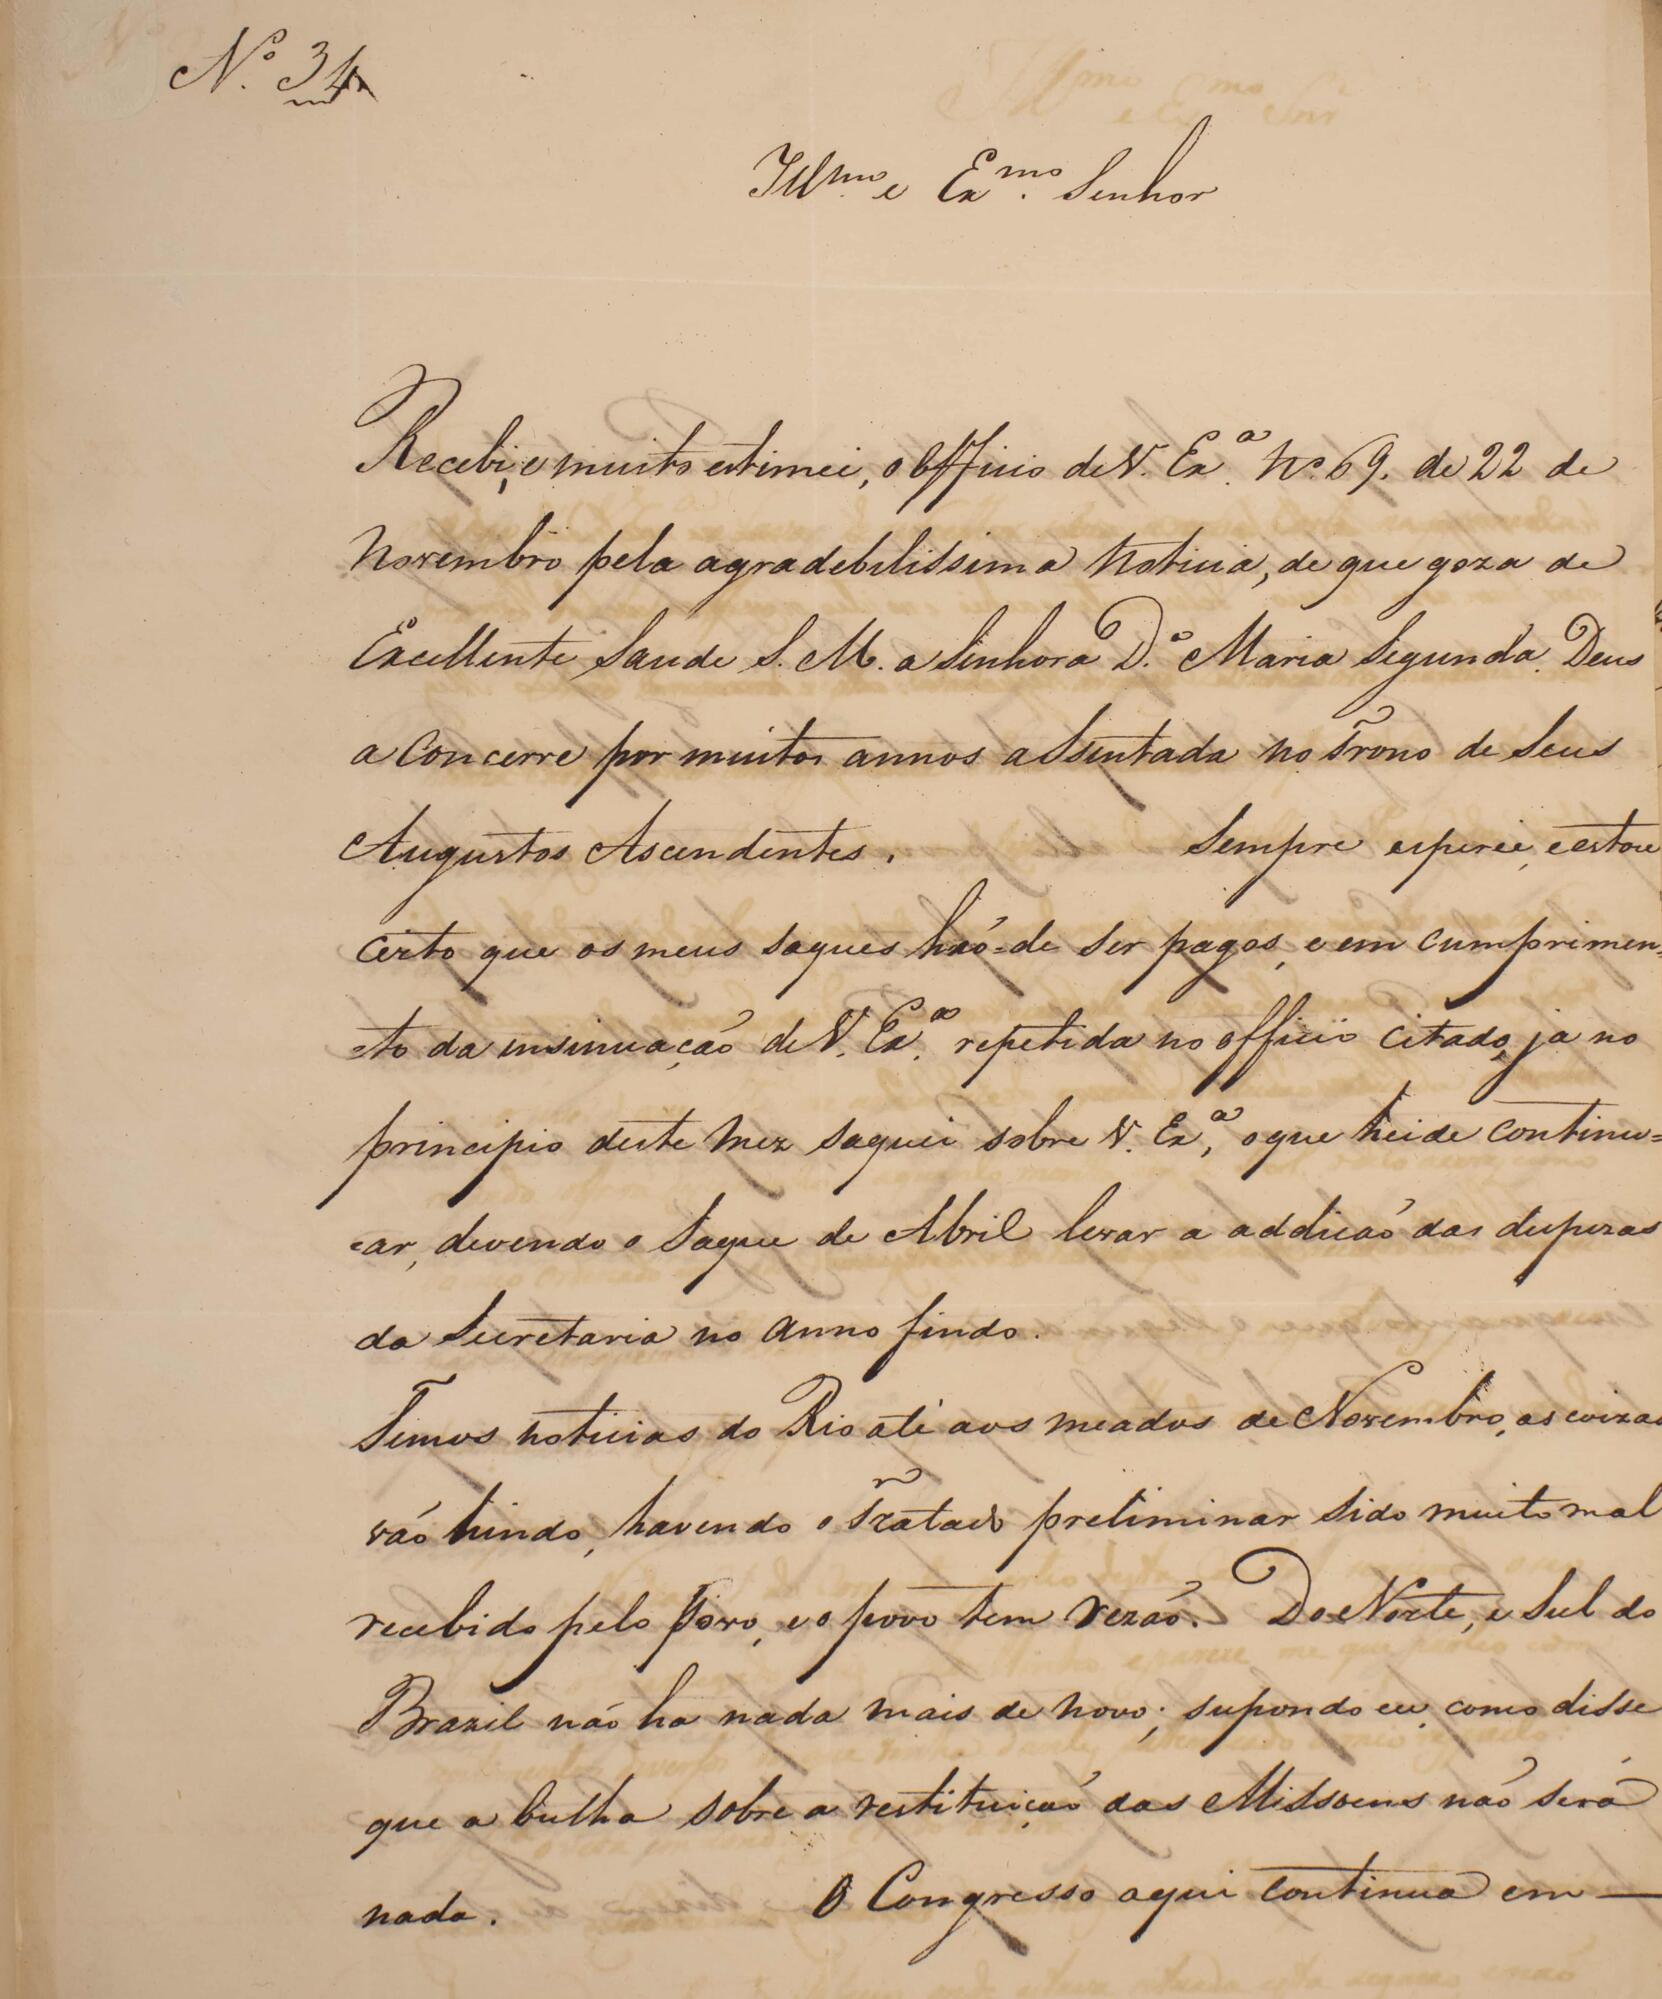 Nº 34
Illmo. e Exmo. Senhor
Recebi, e muito estimei, o Officio de V. Exª. Nº 69. de 22 de
Novembro pela agradebilissima Noticia, de que goza de
Excellente Saude S. M. a Senhora D.ª Maria Segunda. Deus
a Concerve por muitos annos assentada no Trono de Seus
Augustos Ascendentes. Sempre esperei, e estou
certo que os meus saques haó=de ser pagos, e em cumprimen=
=to da insinuação de V. Exª. repetida no officio citado, ja no
principio deste Mez saquei sobre V. Exª, o que heide continu=
=ar, devendo o Saque de Abril levar a addicaó das despezas
da Secretaria no Anno findo.
Temos noticias do Rio até aos meados de Novembro, as coizas
váo hindo, havendo o Tratado preliminar sido muito mal
recebido pelo Povo, e o povo tem rezaó. Do Norte, e Sul do
Brazil náo ha nada mais de novo; supondo eu, como disse
que a bulha sobre a restituiçaó das Missoens naó será
nada. O Congresso aqui continua em —